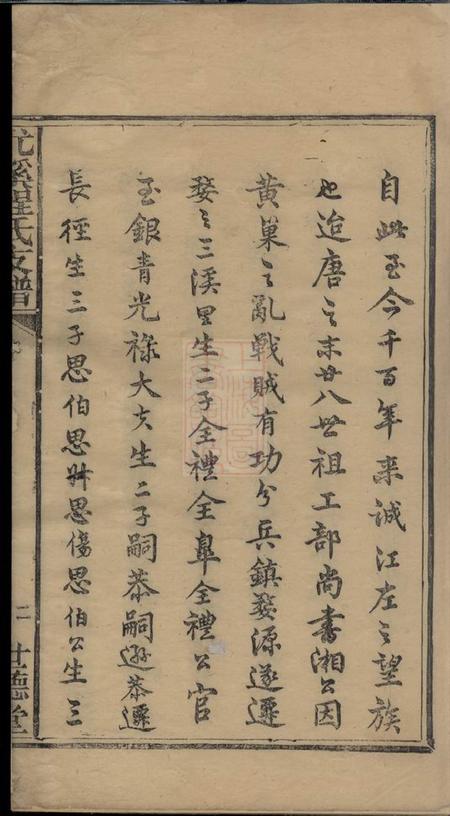 自此至今千百年來誠江左之望族
也迨唐之末廿八世祖工部尚書湘公因
黃巢之亂戰賊有功分兵鎮婺源遂遷
婺之三溪里生二子全禮全臯全禮公官
至銀青光祿大夫生二子嗣恭嗣遜恭遷
長徑生三子思伯思叔思傷思伯公生三
溪程氏支譜
二
世德堂